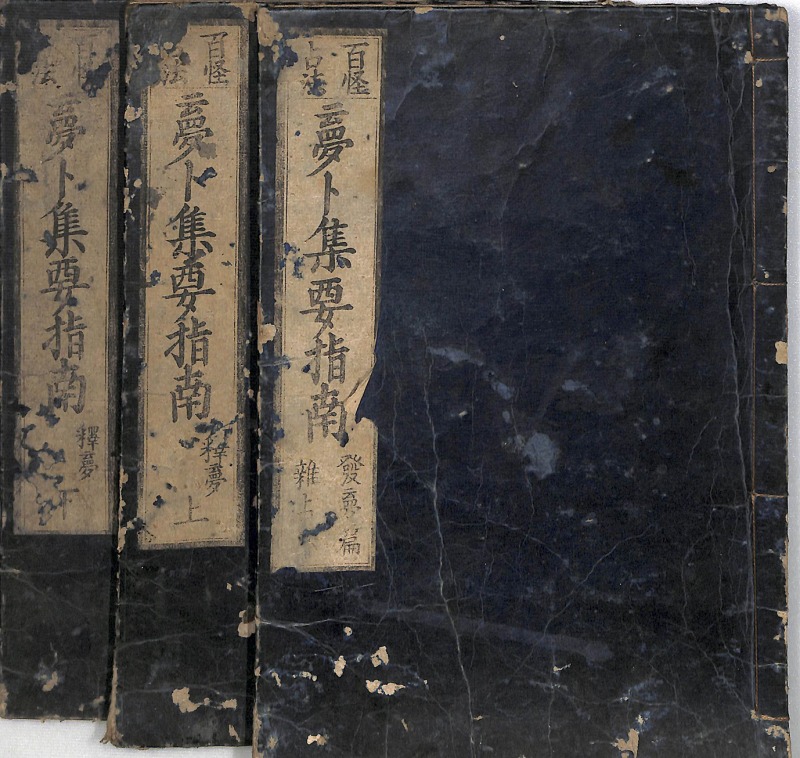 百怪
占法
夢卜集要指南
發夢篇
雜上
百怪
法
夢卜集要指南
釋夢
上
法
夢卜集要指南
釋夢